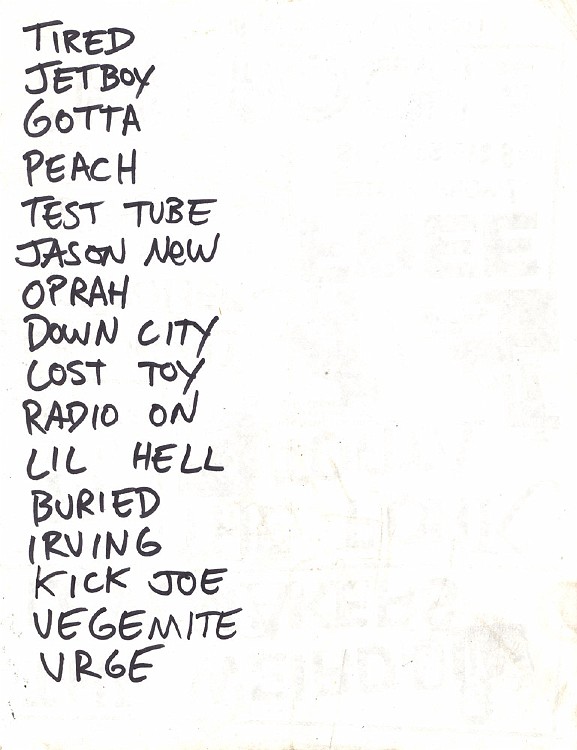 TIRED
JETBOY
GOTTA
PEACH
TEST TUBE
JASON NEW
OPRAH
DOWN CITY
LOST TOY
RADIO ON
LIL HELL
BURIED
IRVING
KICK JOE
VEGEMITE
URGE